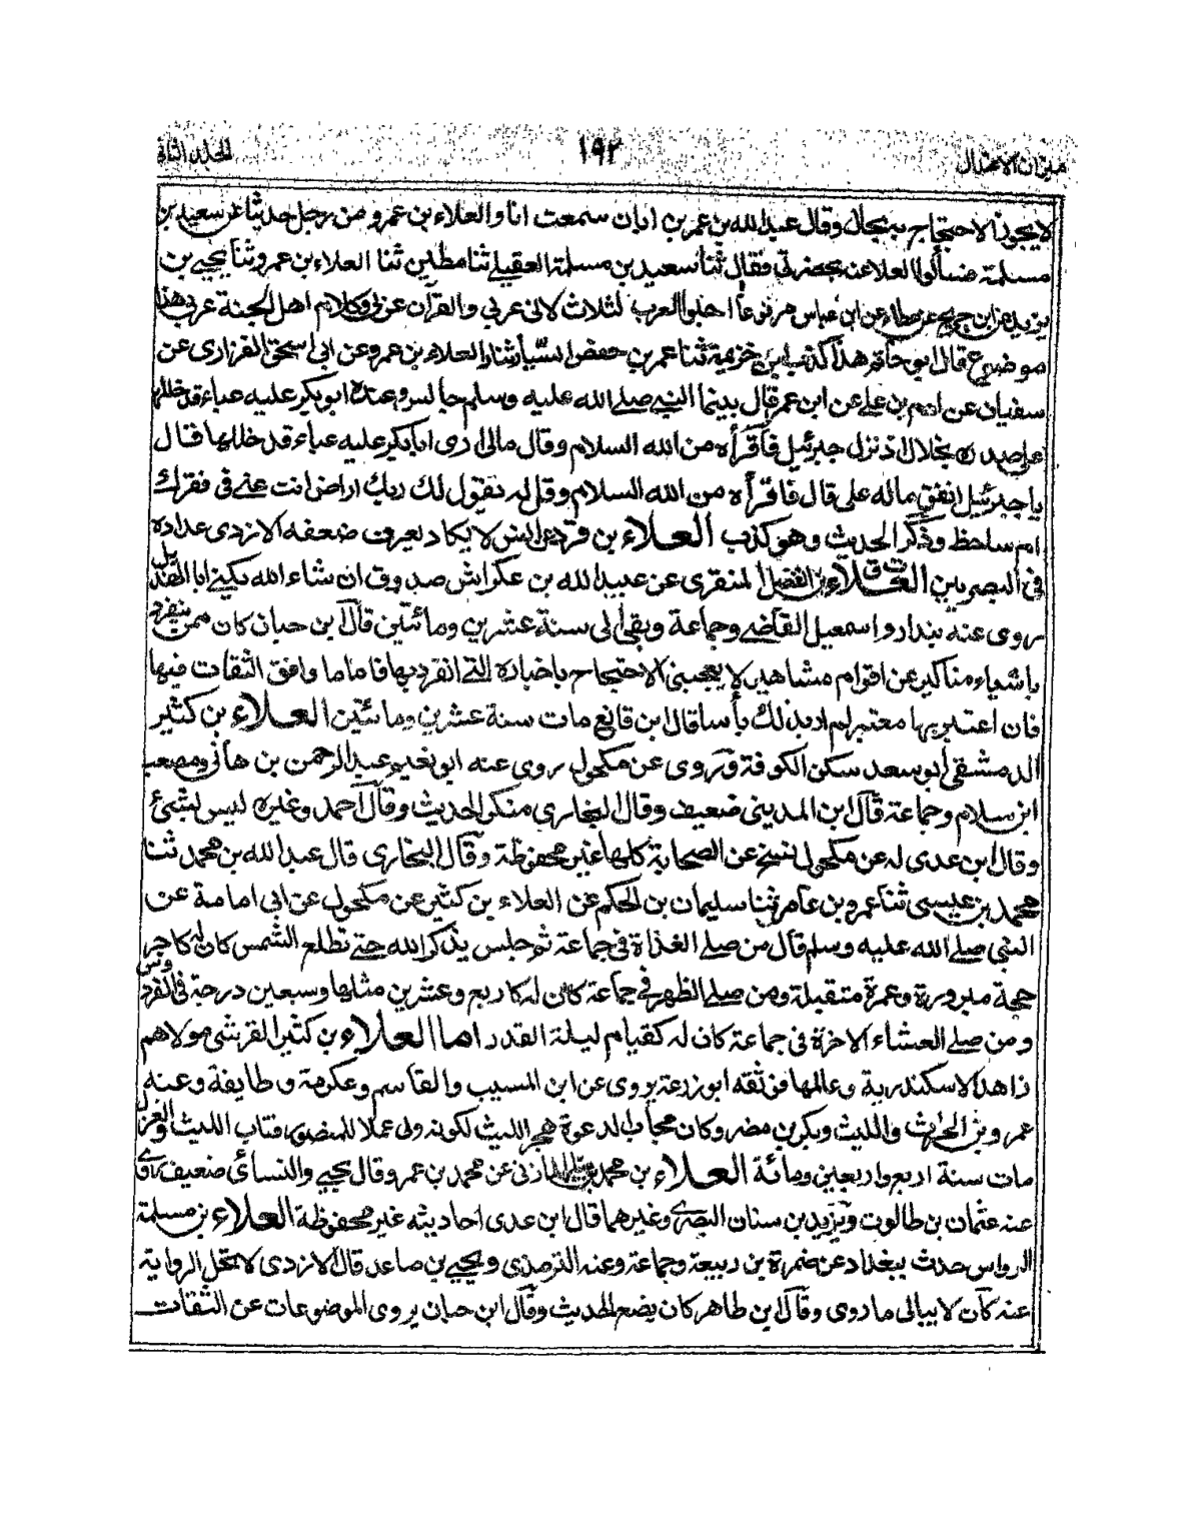 ميزان الاعتدال ١٩٢ المجلد الثاني
لا يجوز الاحتجاج به بحال وقال عبد الله بن عمر بن ابان سمعت انا والعلاء بن عمرو من رجل حديثا عن سعيد بن
مسلمة فسألوا العلاء عنه بحضرتي فقال ثنا سعيد بن مسلمة العقيلي ثنا مطين ثنا العلاء بن عمرو ثنا يحيى بن
يزيد عن ابن جريج عن عطاء عن ابن عباس مرفوعا احبوا العرب لثلاث لاني عربي والقرآن عربي وكلام اهل الجنة عربي هذا
موضوع قال ابو حاتم هذا كذب ابن خزيمة ثنا عمر بن حفص الشيبا ثنا العلاء بن عمرو عن ابي اسحق الفزارى عن
سفيان عن ادم بن علي عن ابن عمر قال بينما النبي صلے الله عليه وسلم جالس وعنده ابو بكر عليه عباء قد خللها
على صدره بخلال اذ نزل جبرئيل فاقرأه من الله السلام وقال مالى ارى ابا بكر عليه عباء قد خللها فقال
يا جبرئيل انفق ماله على قال فاقرأه من الله السلام وقل له يقول لك ربك اراض انت عنى في فقرك
ام ساخط وذكر الحديث وهو كذب العلاء بن فرد عن انس لا يكاد يعرف ضعفه الازدى عداده
فى البصريين العلاء بن الفضل المنقرى عن عبيد الله بن عكراش صدوق ان شاء الله يكنى ابا الهذيل
روى عنه بندار واسمعيل القاضے وجماعة وبقى الى سنة عشرين ومائتين قال ابن حبان كان ممن ينفرد
باشياء مناكير عن اقوام مشاهير لا يعجبنى الاحتجاج باخباره التى انفرد بها فاما ما وافق الثقات فيها
فان اعتبر بها معتبر لم ار بذلك بأسا قال ابن قانع مات سنة عشرين ومائتين العلاء بن كثير
الدمشقى ابو سعد سكن الكوفة وروى عن مكحول روى عنه ابو نعيم عبد الرحمن بن هانى ومصعب
ابن سلام وجماعة قال ابن المدينى ضعيف وقال البخارى منكر الحديث وقال احمد وغيره ليس بشئ
وقال ابن عدى له عن مكحول نسخ عن الصحابة كلها غير محفوظة وقال البخارى قال عبد الله بن محمد ثنا
محمد بن عيسى ثنا عمرو بن عامر ثنا سليمان بن الحكم عن العلاء بن كثير عن مكحول عن ابى امامة عن
النبى صلے الله عليه وسلم قال من صلے الغداة فى جماعة ثم جلس يذكر الله حتى تطلع الشمس كان له كاجر
حجة مبرورة وعمرة متقبلة ومن صلے الظهر فى جماعة كان له كاربع وعشرين مثلها وسبعين درجة فى الفردوس
ومن صلے العشاء الاخرة فى جماعة كان له كقيام ليلة القدر اما العلاء بن كثير القرشى مولاهم
زاهد الاسكندرية وعالمها فوثقه ابو زرعة يروى عن ابن المسيب والقاسم وعكرمة وطايفة وعنه
عمرو بن الحارث والليث وبكر بن مضر وكان مجاب الدعوة هجر الليث لكونه ولى عملا للمنصور فتاب الليث والعزل
مات سنة اربع واربعين ومائة العلاء بن محمد بن المازنى عن محمد بن عمرو قال يحيى والنسائى ضعيف
عنه عثمان بن طالوت ويزيد بن سنان البصرى وغيرهما قال ابن عدى احاديثه غير محفوظة العلاء بن مسلمة
الرواس حدث ببغداد عن ضمرة بن ربيعة وجماعة وعنه الترمذى ويحيى بن صاعد قال الازدى لا تحل الرواية
عنه كان لا يبالى ما روى وقال ابن طاهر كان يضع الحديث وقال ابن حبان يروى الموضوعات عن الثقات